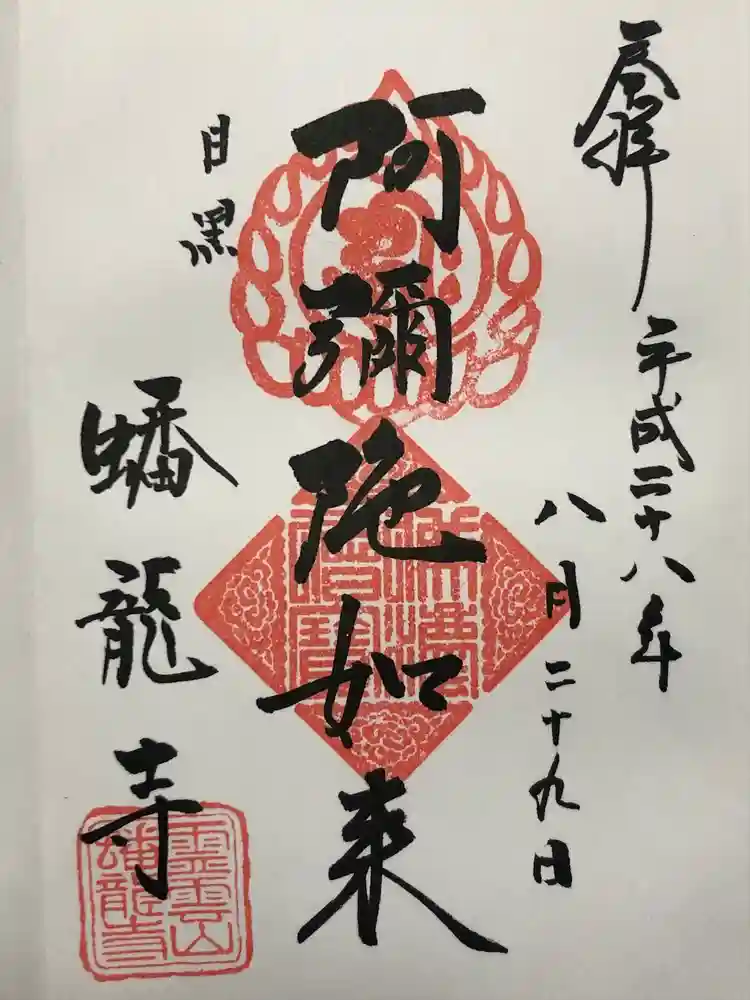 奉拝
平成二十八年
八月二十九日
阿彌陀如来
目黒
蟠龍寺
霊雲山
蟠龍寺